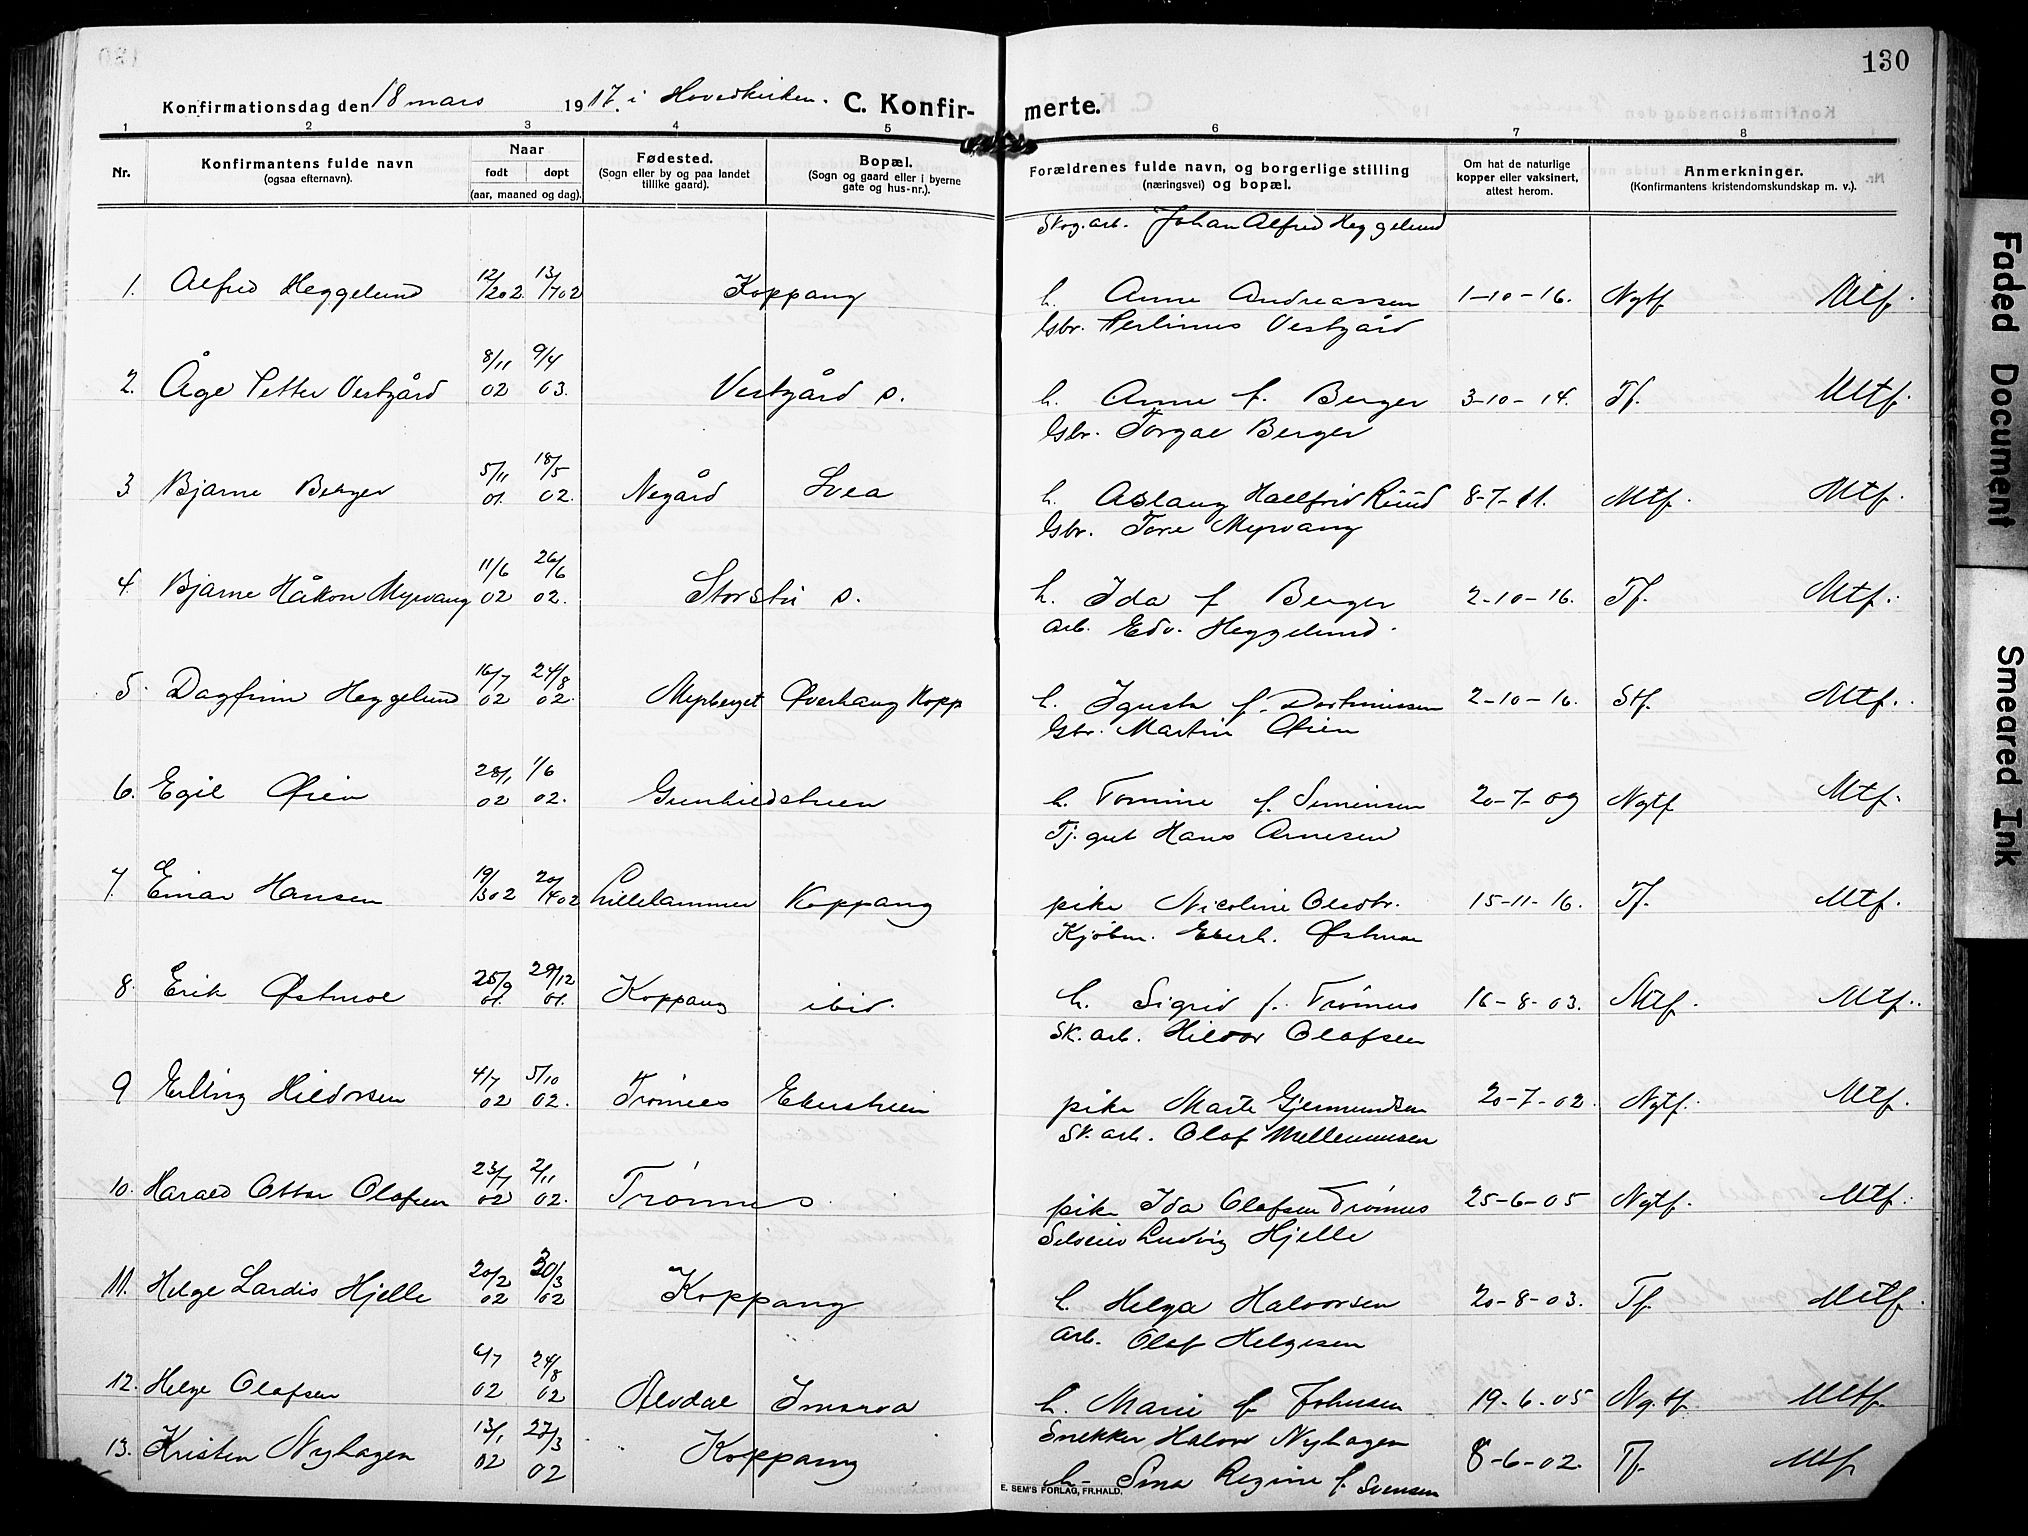 130
Konfirmationsdag den 18 mars 1917. i Hovedkirken. C. Konfirmerte.
1 2 3 4 5 6 7 8
Nr.
Konfirmantens fulde navn
(ogsaa efternavn).
Naar
født døpt
(aar, maaned og dag).
Fødested.
(Sogn eller by og paa landet
tillike gaard).
Bopæl.
(Sogn og gaard eller i byerne
gate og hus-nr.).
Forældrenes fulde navn, og borgerlige stilling
(næringsvei) og bopæl.
Om hat de naturlige
kopper eller vaksinert,
attest herom.
Anmerkninger.
(Konfirmantens kristendomskundskap m. v.).
Skog.arb. Johan Alfred Heggelund
1. Alfred Heggelund 12/202 13/702 Koppang h. Anne Andreassen 1-10-16. Nytf Mtf.
Gbr. Vestgård
8/11 9/4
2. Åge Petter Vestgård 02 03. Vestgård s. h. Anne f. Berger 3-10-14. Tf. Mtf.
Gbr. Torgal Berger
5/11 18/5
3 Bjarne Berger 01. 02. Negård Svea h. Aslaug Hallfrid Ruud 8-7-11. Mtf. Mtf.
Gbr. Tore Myrvang
11/6 26/6
4. Bjarne Håkon Myrvang 02 02. Storstu s. h. Ida f Berger 2-10-16. Tf. Mtf.
Arb. Edv. Heggelund.
16/7 24/8
5. Dagfinn Heggelund 02 02. Myrberget Øverhaug Kopp h. f. 2-10-16. Stf. Mtf.
Gbr. Martin Øien
28/1 1/6
6. Egil Øien 02 02. h. Tomine f. Simensen 20-7-09 Nytf Mtf.
Tj. gut Hans Arnesen
7. Einar Hansen 19/302 20/402 Lillehammer Koppang pike Nicoline Olsdtr. 15-11-16. Tf. Mtf.
Kjøbm. Eberh. Østmoe
25/9 29/12
8. Erik Østmoe 01. 01. Koppang ibid. h. Sigrid f. Trønnes 16-8-03. Mtf. Mtf.
Sk. arb. Hildor Olafsen
4/7 5/10
9 Erling Hildorsen 02 02. Trønnes pike Marte Gjermundsen 20-7-02. Nytf. Mtf.
Sk. arb. Olof
23/7 2/11
10. Harald Ottar Olofsen 02 02. Trønnes pike Ida Olafsen Trønnes 25-6-05 Nytf. Mtf.
Ludvig Hjelle
20/2 30/3
11. Helge Lardis Hjelle 02 02 Koppang h. Helga Halvorsen 20-8-03. Tf. Mtf.
Arb. Olof Helgesen
6/7 24/8
12. Helge Olafsen 02 02 Alvdal Imsroa h. Marie f. Johnsen 19-6-05 Ng.tf. Mtf.
Snekker Halvor Nyhagen
13/1 27/3
13. Kristen Nyhagen 02 02 Koppang h. Sina Regine f. Svensen 8-6-02. Tf. Mtf
E. SEM'S FORLAG, FR.HALD.
Faded Document
Smeared Ink